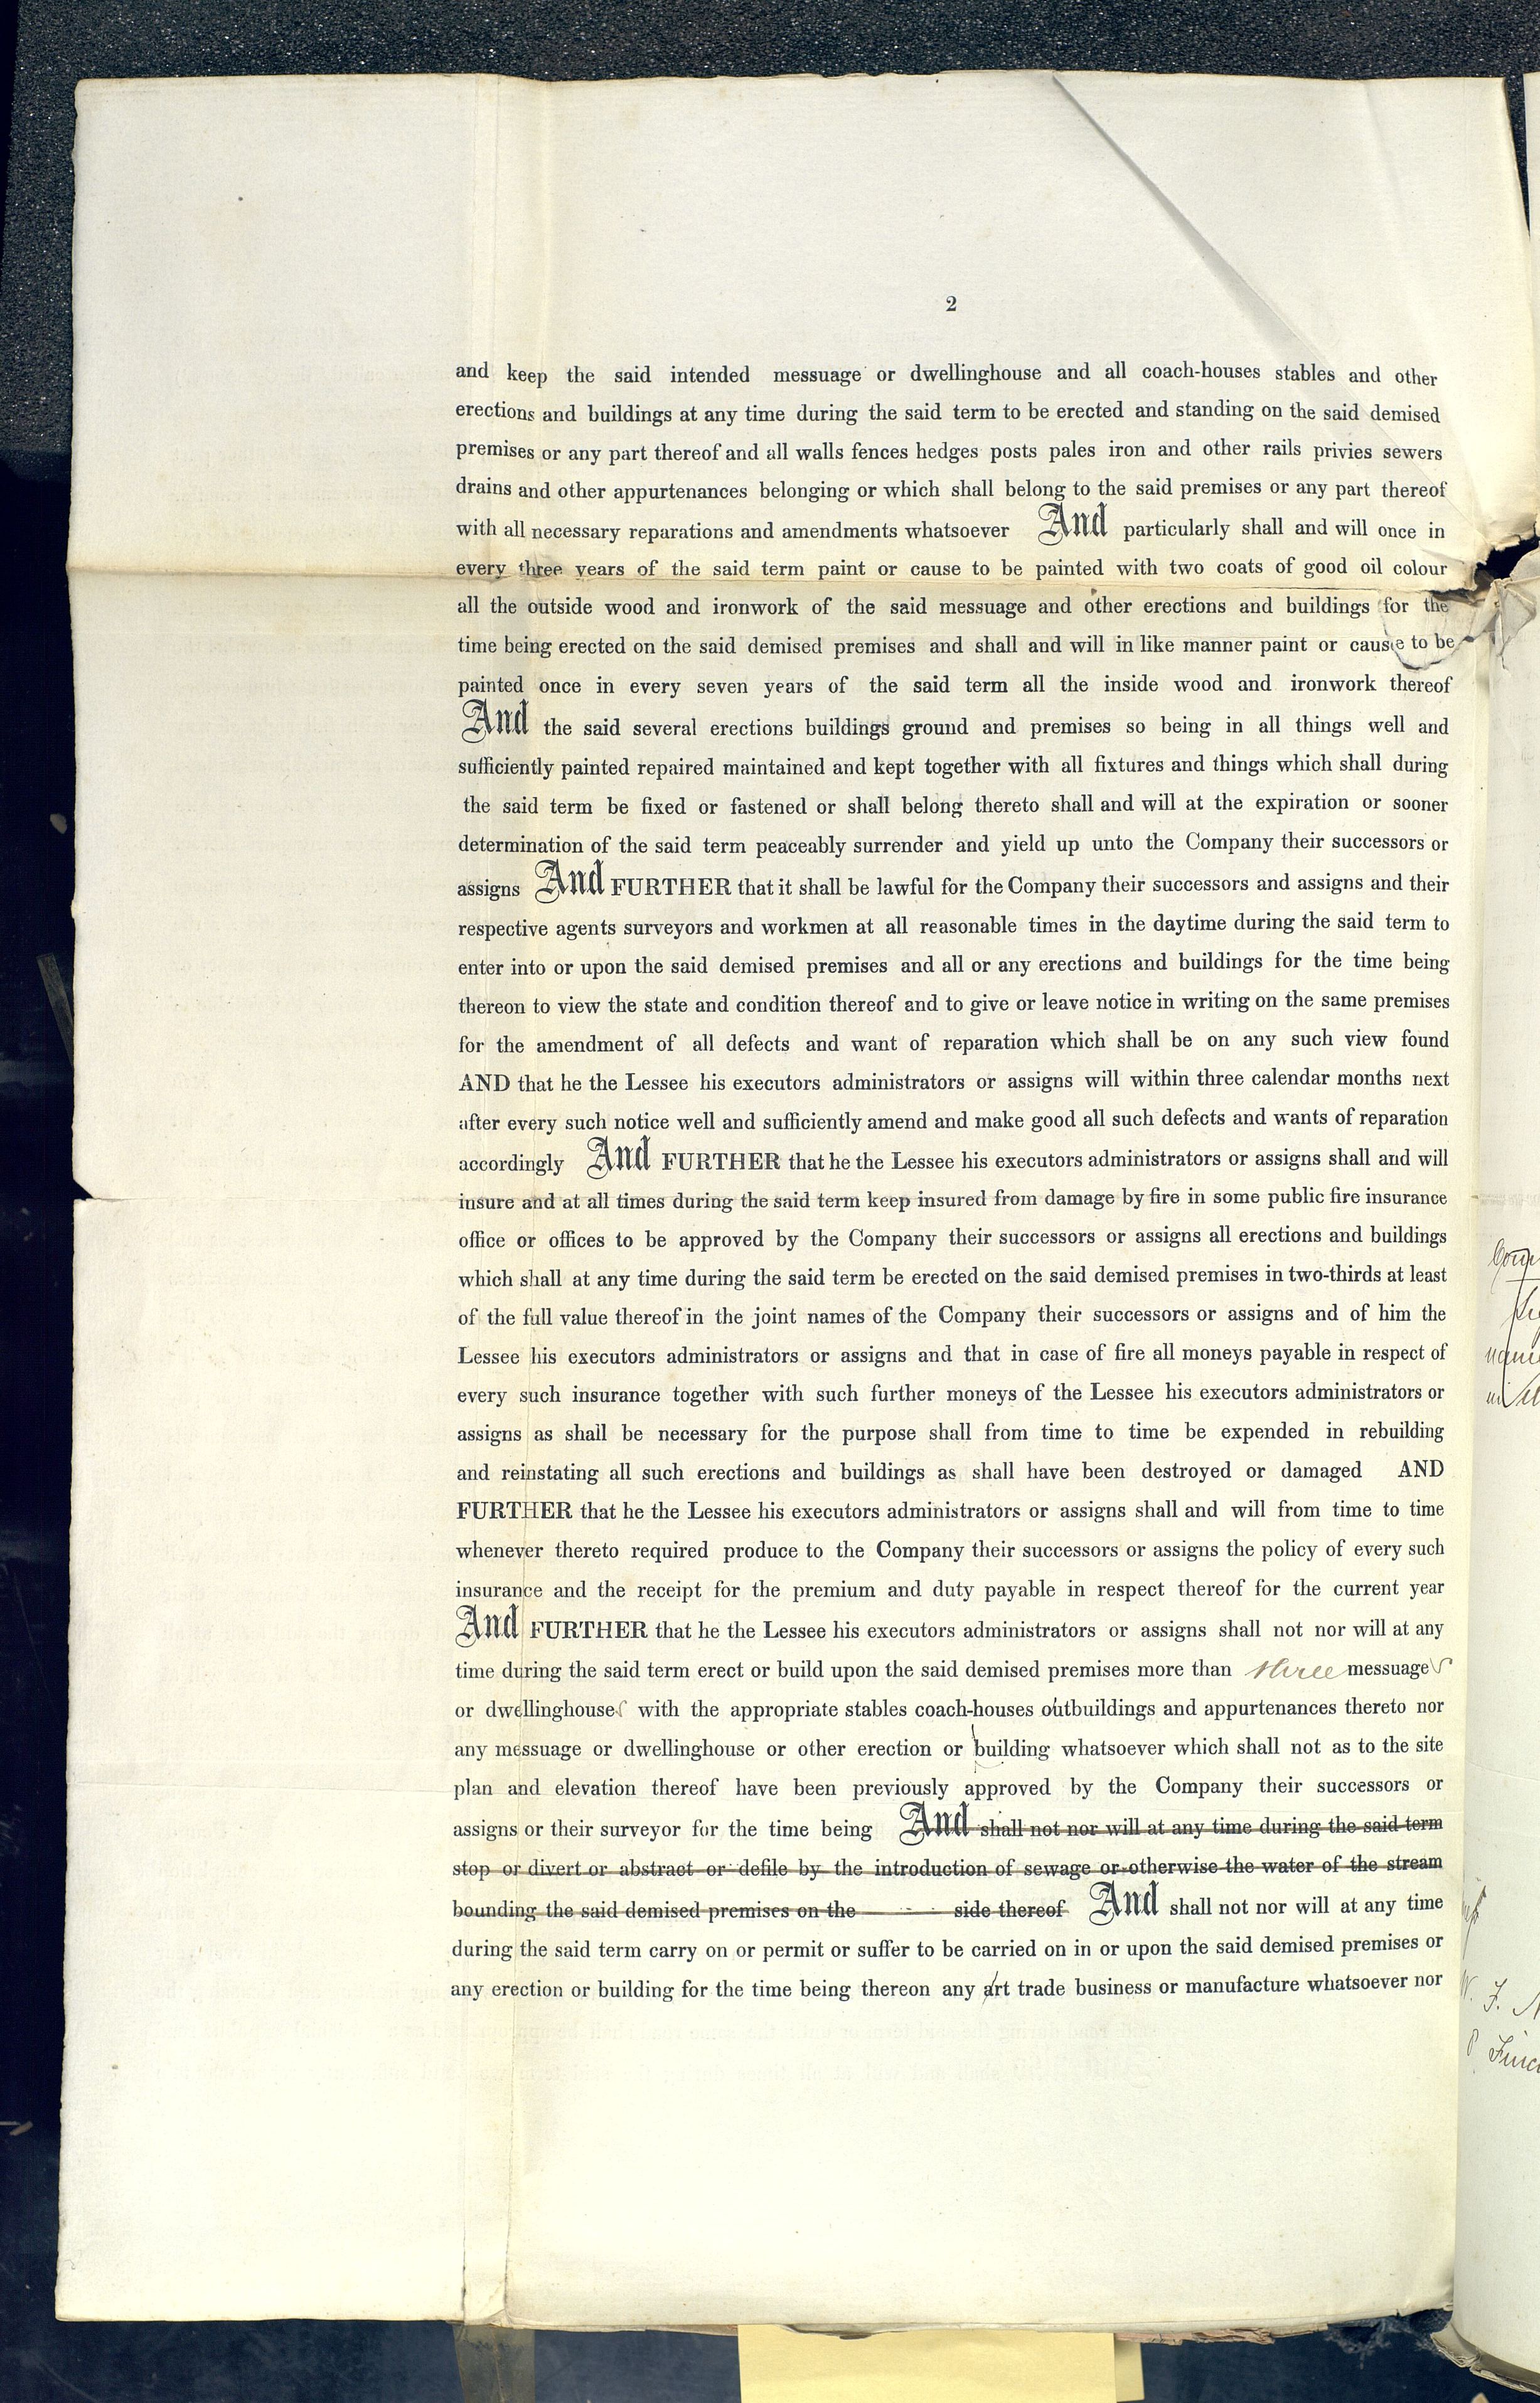 2
and keep the said intended messuage or dwellinghouse and all coach-houses stables and other
erections and buildings at any time during the said term to be erected and standing on the said demised
premises or any part thereof and all walls fences hedges posts pales iron and other rails privies sewers
drains and other appurtenances belonging or which shall belong to the said premises or any part thereof
with all necessary reparations and amendments whatsoever And particularly shall and will once in
every three years of the said term paint or cause to be painted with two coats of good oil colour
all the outside wood and ironwork of the said messuage and other erections and buildings for the
time being erected on the said demised premises and shall and will in like manner paint or cause to be
painted once in every seven years of the said term all the inside wood and ironwork thereof
And the said several erections buildings ground and premises so being in all things well and
sufficiently painted repaired maintained and kept together with all fixtures and things which shall during
the said term be fixed or fastened or shall belong thereto shall and will at the expiration or sooner
determination of the said term peaceably surrender and yield up unto the Company their successors or
assigns And FURTHER that it shall be lawful for the Company their successors and assigns and their
respective agents surveyors and workmen at all reasonable times in the daytime during the said term to
enter into or upon the said demised premises and all or any erections and buildings for the time being
thereon to view the state and condition thereof and to give or leave notice in writing on the same premises
for the amendment of all defects and want of reparation which shall be on any such view found
AND that he the Lessee his executors administrators or assigns will within three calendar months next
after every such notice well and sufficiently amend and make good all such defects and wants of reparation
accordingly And FURTHER that he the Lessee his executors administrators or assigns shall and will
insure and at all times during the said term keep insured from damage by fire in some public fire insurance
office or offices to be approved by the Company their successors or assigns all erections and buildings
which shall at any time during the said term be erected on the said demised premises in two-thirds at least
of the full value thereof in the joint names of the Company their successors or assigns and of him the
Lessee his executors administrators or assigns and that in case of fire all moneys payable in respect of
every such insurance together with such further moneys of the Lessee his executors administrators or
assigns as shall be necessary for the purpose shall from time to time be expended in rebuilding
and reinstating all such erections and buildings as shall have been destroyed or damaged AND
FURTHER that he the Lessee his executors administrators or assigns shall and will from time to time
whenever thereto required produce to the Company their successors or assigns the policy of every such
insurance and the receipt for the premium and duty payable in respect thereof for the current year
And FURTHER that he the Lessee his executors administrators or assigns shall not nor will at any
time during the said term erect or build upon the said demised premises more than three messuages
or dwellinghouses with the appropriate stables coach-houses outbuildings and appurtenances thereto nor
any messuage or dwellinghouse or other erection or building whatsoever which shall not as to the site
plan and elevation thereof have been previously approved by the Company their successors or
assigns or their surveyor for the time being And shall not nor will at any time during the said term
stop or divert or abstract or defile by the introduction of sewage or otherwise the water of the stream
bounding the said demised premises on the side thereof And shall not nor will at any time
during the said term carry on or permit or suffer to be carried on in or upon the said demised premises or
any erection or building for the time being thereon any art trade business or manufacture whatsoever nor